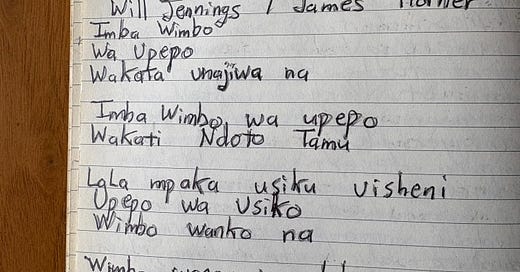 Will Jennings / James Horner
Imba Wimbo
Wa Upepo
Wakata unajiwa na
Imba Wimbo, wa upepo
Wakati Ndoto Tamu
LaLa mpaka usiku visheni
Upepo wa Usiko
Wimbo wanko na
Wimbo